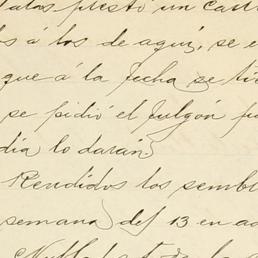 prestó un
os á los de aquí, se e
que á la fecha se
se pidió el fulgón
día lo darán
Rendidos los sembr
semana del 13 en ad